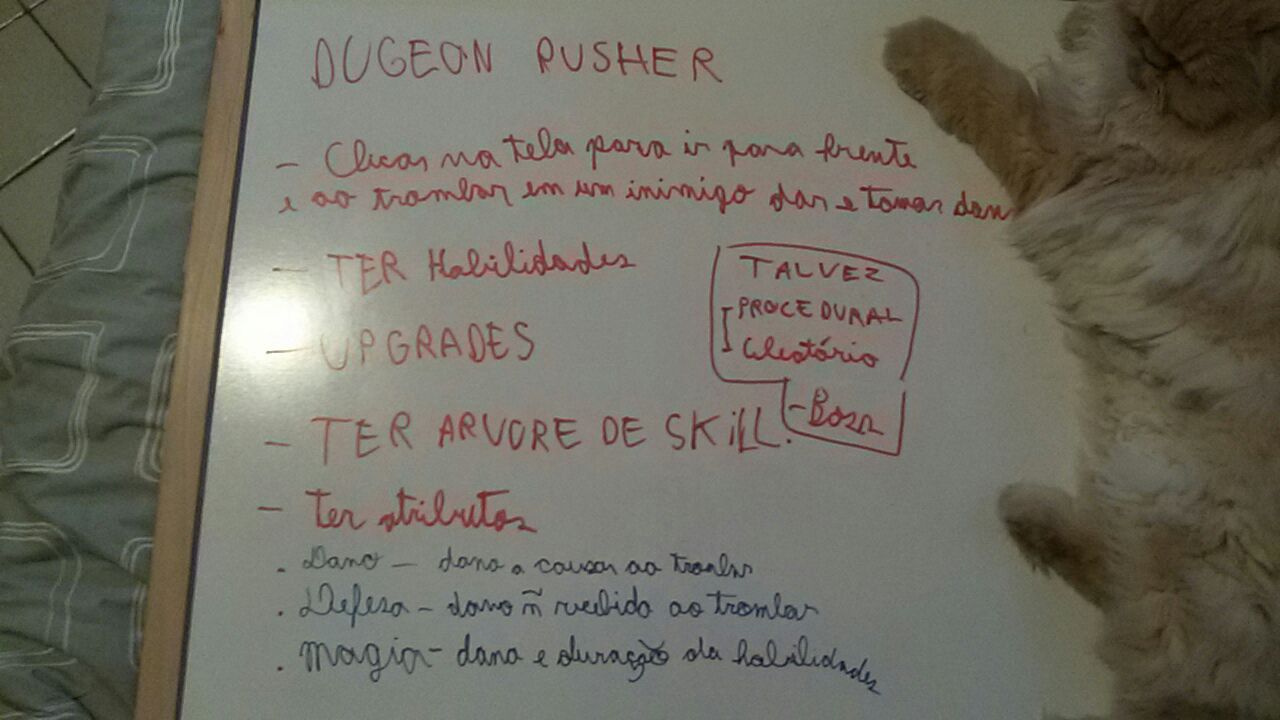 DUGEON PUSHER
- Clicar na tela para ir para frente
e ao trombar em um inimigo dar e tomar dano
- TER Habilidades
- UPGRADES
- TER ARVORE DE SKiLL.
TALVEZ
PROCEDURAL
Aleatório
- Boss
- Ter atributos
. Dano - dano a causar ao trombar
. Defesa - dano ñ recebido ao trombar
. Magia - dano e duração da habilidades